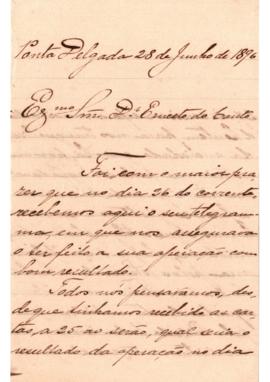 Ponta Delgada 28 de Junho de 1896
Ex.mo Snr. Dr. Ernesto do Canto
Foi com o maior pra-
zer que no dia 26 do corrente
recebemos aqui o seu telegram-
ma, em que nos assegurava
o ter feito a sua operação com
bom resultado.
Todos nós pensavamos, des-
de que tinhamos recebido as car-
tas, a 25 ao serão, qual seria o
resultado da operação no dia